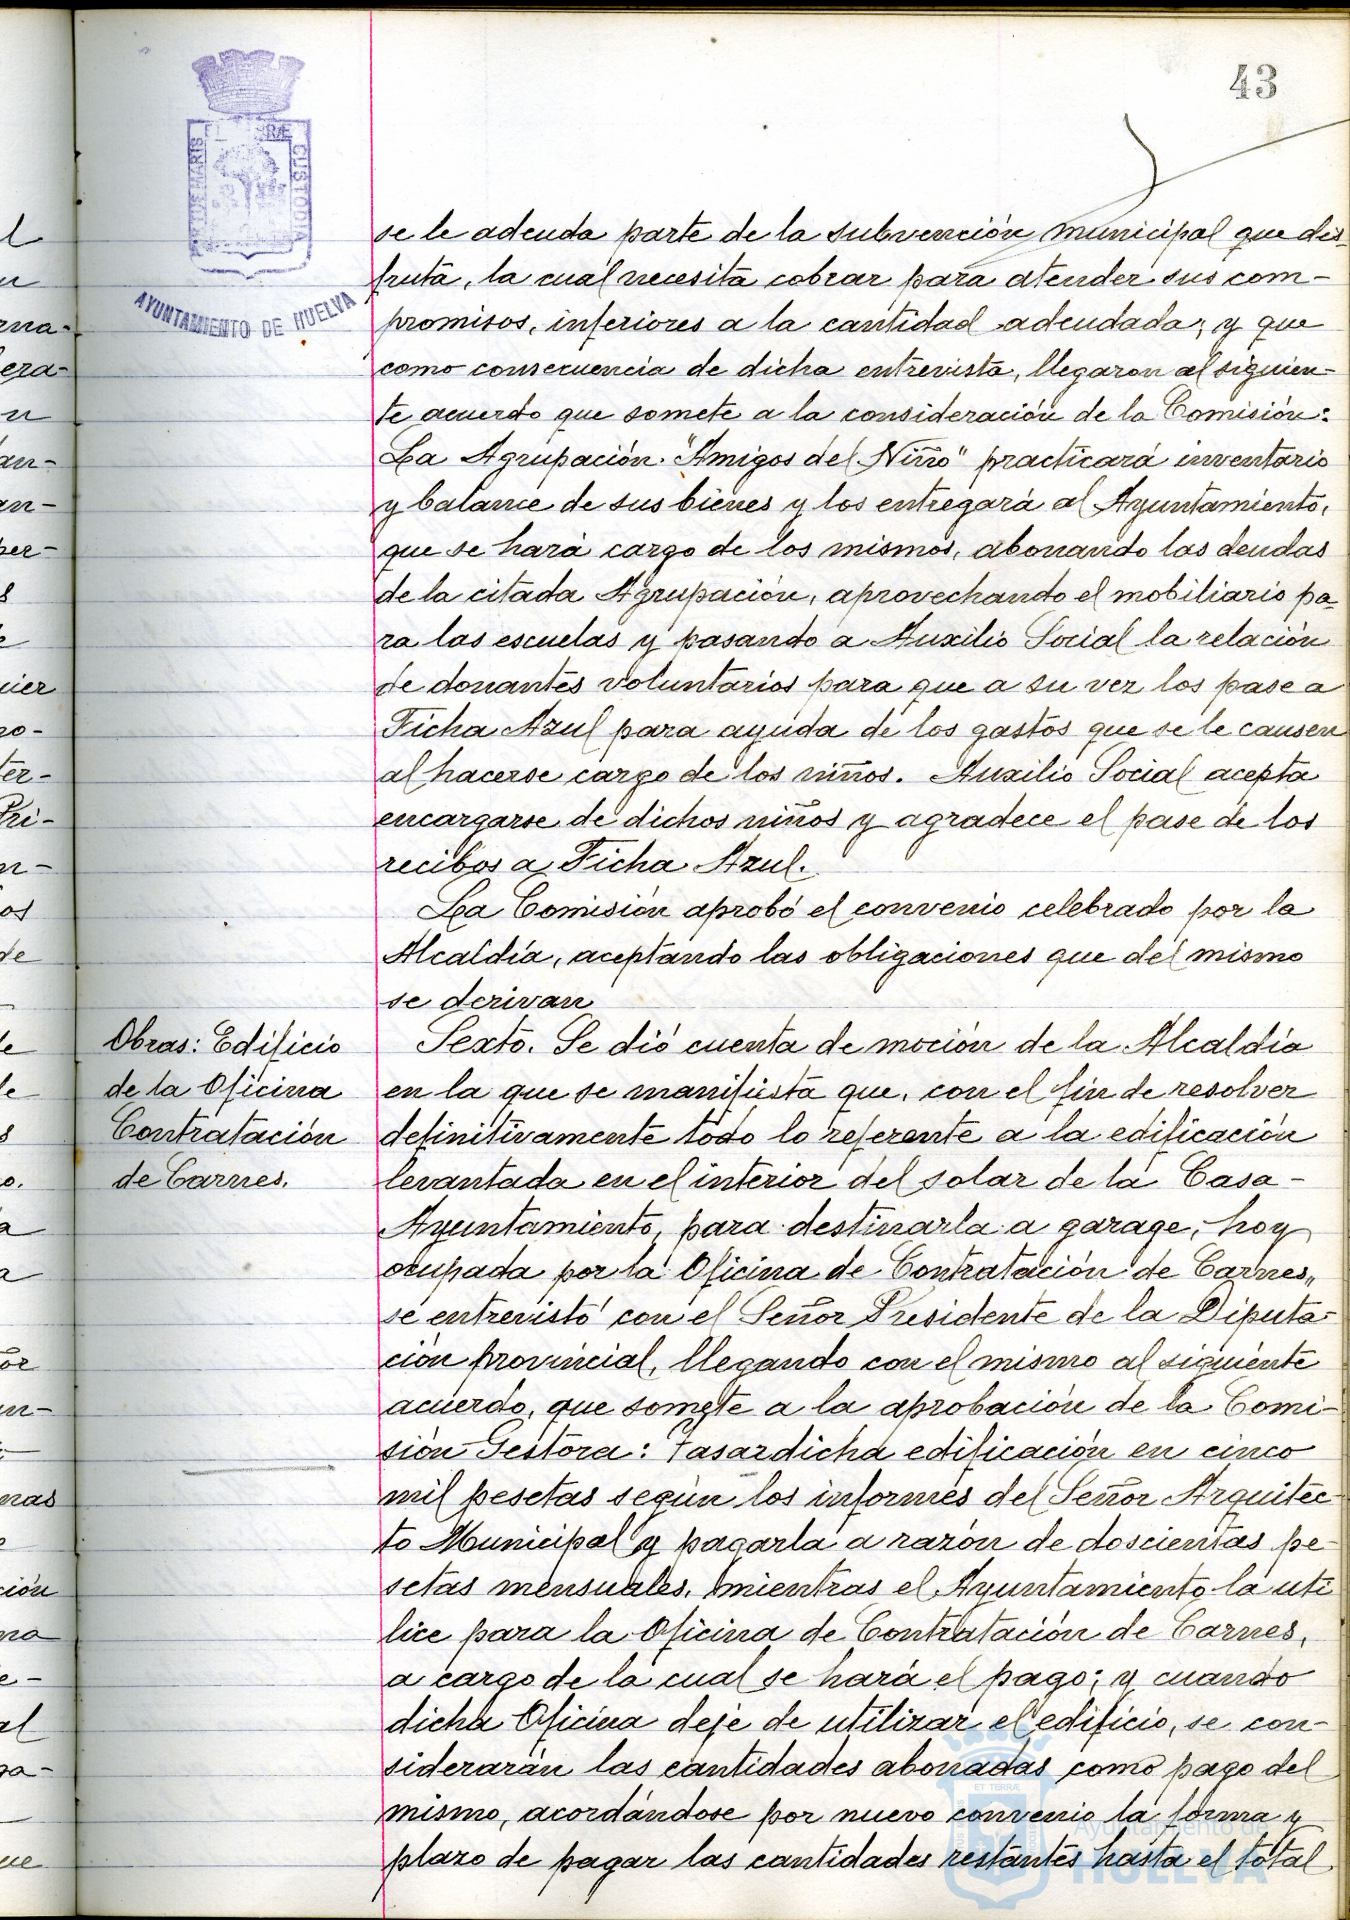 43
PORTUS MARIS ET TERRÆ CUSTODIA
AYUNTAMIENTO DE HUELVA
se le adeuda parte de la subvención municipal que dis-
fruta, la cual necesita cobrar para atender sus com-
promisos, inferiores a la cantidad adeudada; y que
como consecuencia de dicha entrevista, llegaron al siguien-
te acuerdo que somete a la consideración de la Comisión:
La Agrupación "Amigos del Niño" practicará inventario
y balance de sus bienes y los entregará al Ayuntamiento,
que se hará cargo de los mismos, abonando las deudas
de la citada Agrupación, aprovechando el mobiliario pa-
ra las escuelas y pasando a Auxilio Social la relación
de donantes voluntarios para que a su vez los pase a
Ficha Azul para ayuda de los gastos que se le causen
al hacerse cargo de los niños. Auxilio Social acepta
encargarse de dichos niños y agradece el pase de los
recibos a Ficha Azul.
La Comisión aprobó el convenio celebrado por la
Alcaldía, aceptando las obligaciones que del mismo
se derivan
Obras: Edificio
de la Oficina
Contratación
de Carnes.
Sexto. Se dió cuenta de moción de la Alcaldía
en la que se manifiesta que, con el fin de resolver
definitivamente todo lo referente a la edificación
levantada en el interior del solar de la Casa-
Ayuntamiento, para destinarla a garage, hoy
ocupada por la Oficina de Contratación de Carnes,
se entrevistó con el Señor Presidente de la Diputa-
ción provincial, llegando con el mismo al siguiente
acuerdo, que somete a la aprobación de la Comi-
sión Gestora: Tasar dicha edificación en cinco
mil pesetas según los informes del Señor Arquitec-
to Municipal y pagarla a razón de doscientas pe-
setas mensuales, mientras el Ayuntamiento la uti
lice para la Oficina de Contratación de Carnes,
a cargo de la cual se hará el pago; y cuando
dicha Oficina deje de utilizar el edificio, se con-
siderarán las cantidades abonadas como pago del
mismo, acordándose por nuevo convenio la forma y
plazo de pagar las cantidades restantes hasta el total
Ayuntamiento de
HUELVA